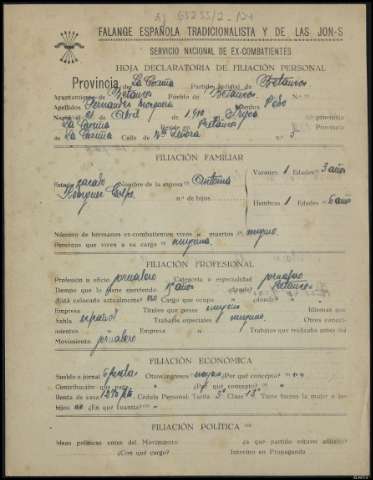 FALANGE ESPAÑOLA TRADICIONALISTA Y DE LAS JON-S
SERVICIO NACIONAL DE EX-COMBATIENTES
HOJA DECLARATORIA DE FILIACIÓN PERSONAL
Provincia de La Coruña Partido Judicial de Betanzos
Ayuntamiento de Betanzos Pueblo de Betanzos N.º
Apellidos Fernandez Nombre
Nació el 21 de Abril de 1.910 en
La Coruña Reside en Betanzos Provincia
de La Coruña Calle de
FILIACIÓN FAMILIAR
Estado casado Nombre de la esposa Antonia Varones 1 Edades 3 años
n.º de hijos Hembras 1 Edades 6 año
Número de hermanos ex-combatientes vivos muertos ninguno
Personas que viven a su cargo ninguna
FILIACIÓN PROFESIONAL
Profesión u oficio jornalero Categoría o especialidad jornalero
Tiempo que la viene ejerciendo años ¿dónde? Betanzos
¿Está colocado actualmente? no Cargo que ocupa ¿dónde?
Empresa Títulos que posee ninguno Idiomas que
habla español Trabajos especiales ninguno Otros conoci-
mientos Empresa Trabajos que realizaba antes del
Movimiento jornalero
FILIACIÓN ECONÓMICA
Sueldo o jornal 6 pesetas Otros ingresos ¿Por qué concepto?
Contribución que paga ¿Por qué concepto?
Renta de casa Cédula Personal: Tarifa Clase 13ª Tiene tierras la mujer o los
hijos no ¿En qué cuantía?
FILIACIÓN POLÍTICA
Ideas políticas antes del Movimiento ¿a qué partido estuvo afiliado?
¿Con qué cargo? Intervino en Propaganda